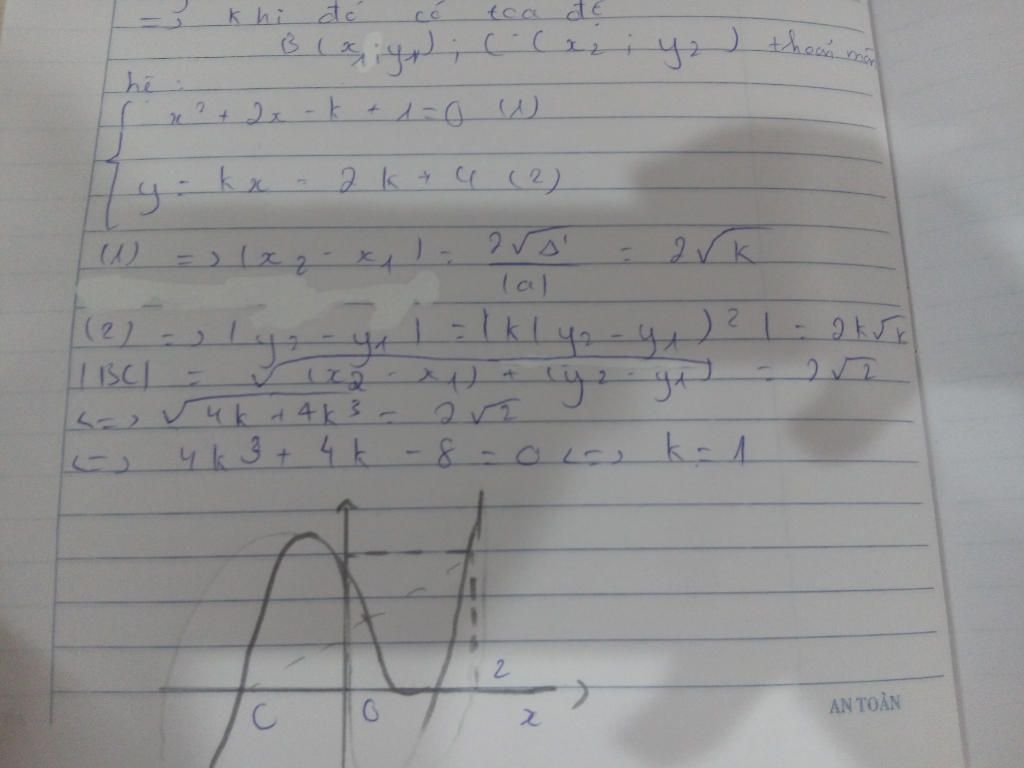 => khi đó có tọa độ
B(x₁;y₁); C(x₂;y₂) thoả mãn
hệ:
x² + 2x - k + 1 = 0 (1)
y = kx - 2k + 4 (2)
(1) => |x₂ - x₁| = 2√Δ' / |a| = 2√k
(2) => |y₂ - y₁| = |k(y₂ - y₁)²| = 2k√k
|BC| = √(x₂ - x₁) + (y₂ - y₁) = 2√2
<=> √4k + 4k³ = 2√2
<=> 4k³ + 4k - 8 = 0 <=> k = 1
2
C O x
AN TOÀN